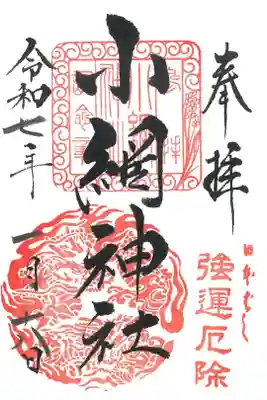 奉拝
強運厄除
小網神社
令和七年
一月六日